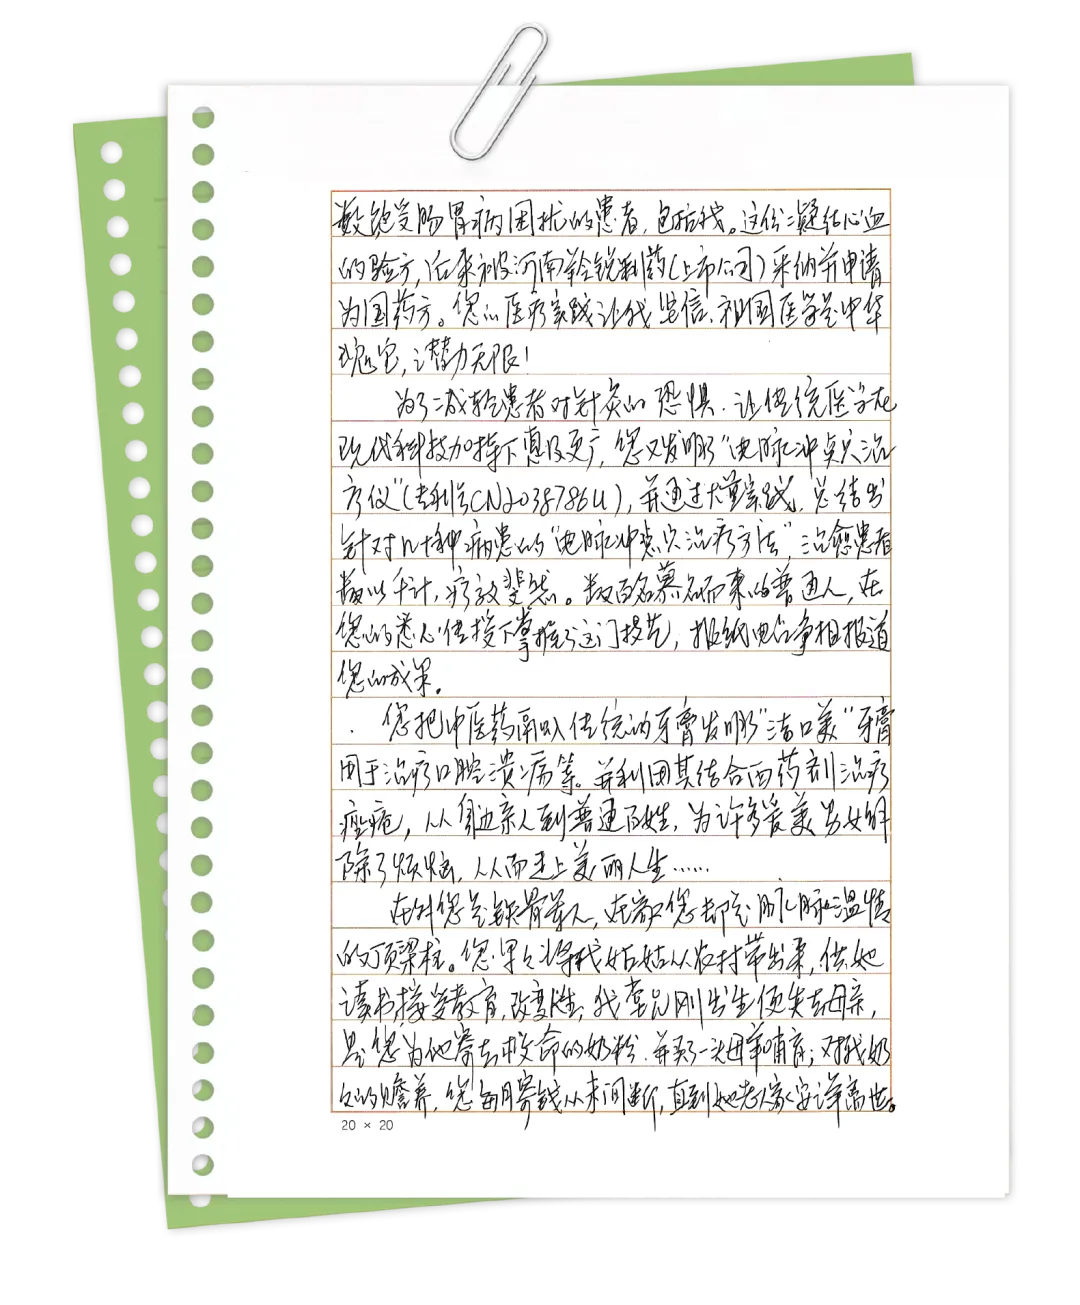 数饱受肠胃病困扰的患者,包括我。这份凝结心血
的验方,后来被河南羚锐制药(上市公司)采纳并申请
为国药方。您的医疗实践让我坚信,祖国医学是中华
瑰宝,潜力无限!
为了减轻患者对针灸的恐惧,让传统医学在
现代科技加持下惠及更广,您又发明了“电脉冲点穴治
疗仪”(专利号CN2038786U),并通过大量实践,总结出
针对几十种病患的“电脉冲点穴治疗方法”,治愈患者
数以千计,疗效斐然。数百名慕名而来的普通人,在
您的悉心传授下掌握了这门技艺,报纸电台争相报道
您的成果。
您把中医药融入传统的牙膏发明了“洁口美”牙膏
用于治疗口腔溃疡等。并利用其结合西药剂治疗
痤疮,从身边亲人到普通百姓,为许多爱美男女解
除了烦恼,从而走上美丽人生……
在外您是铁骨军人,在家您却是脉脉温情
的顶梁柱。您早早将我姑姑从农村带出来,供她
读书接受教育,改变人生;我堂兄刚出生便失去母亲,
是您为他寄去救命的奶粉,并买了一头母羊哺育;对我奶
奶的赡养,您每月寄钱从未间断,直到她老人家安详离世。
20 × 20